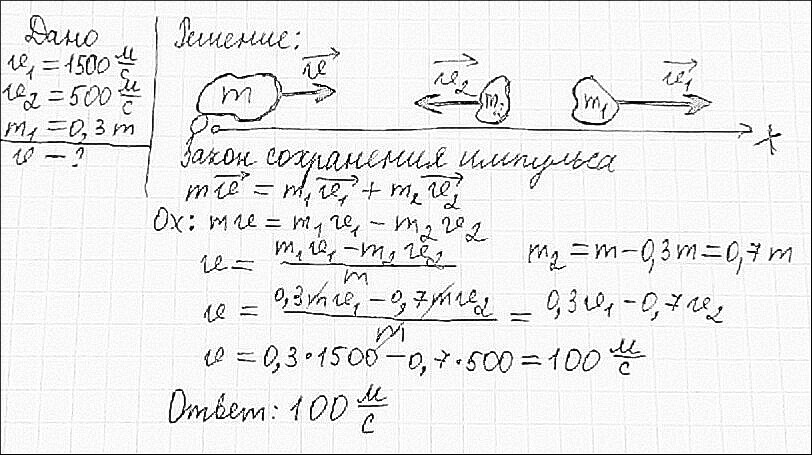 Дано
υ₁ = 1500 м/с
υ₂ = 500 м/с
m₁ = 0,3 m
υ – ?
Решение:
m υ⃗ υ⃗₂ m₂ m₁ υ⃗₁
O x
Закон сохранения импульса
mυ⃗ = m₁υ⃗₁ + m₂υ⃗₂
Ox: mυ = m₁υ₁ – m₂υ₂
υ = (m₁υ₁ – m₂υ₂)/m m₂ = m – 0,3m = 0,7m
υ = (0,3mυ₁ – 0,7mυ₂)/m = 0,3υ₁ – 0,7υ₂
υ = 0,3·1500 – 0,7·500 = 100 м/с
Ответ: 100 м/с